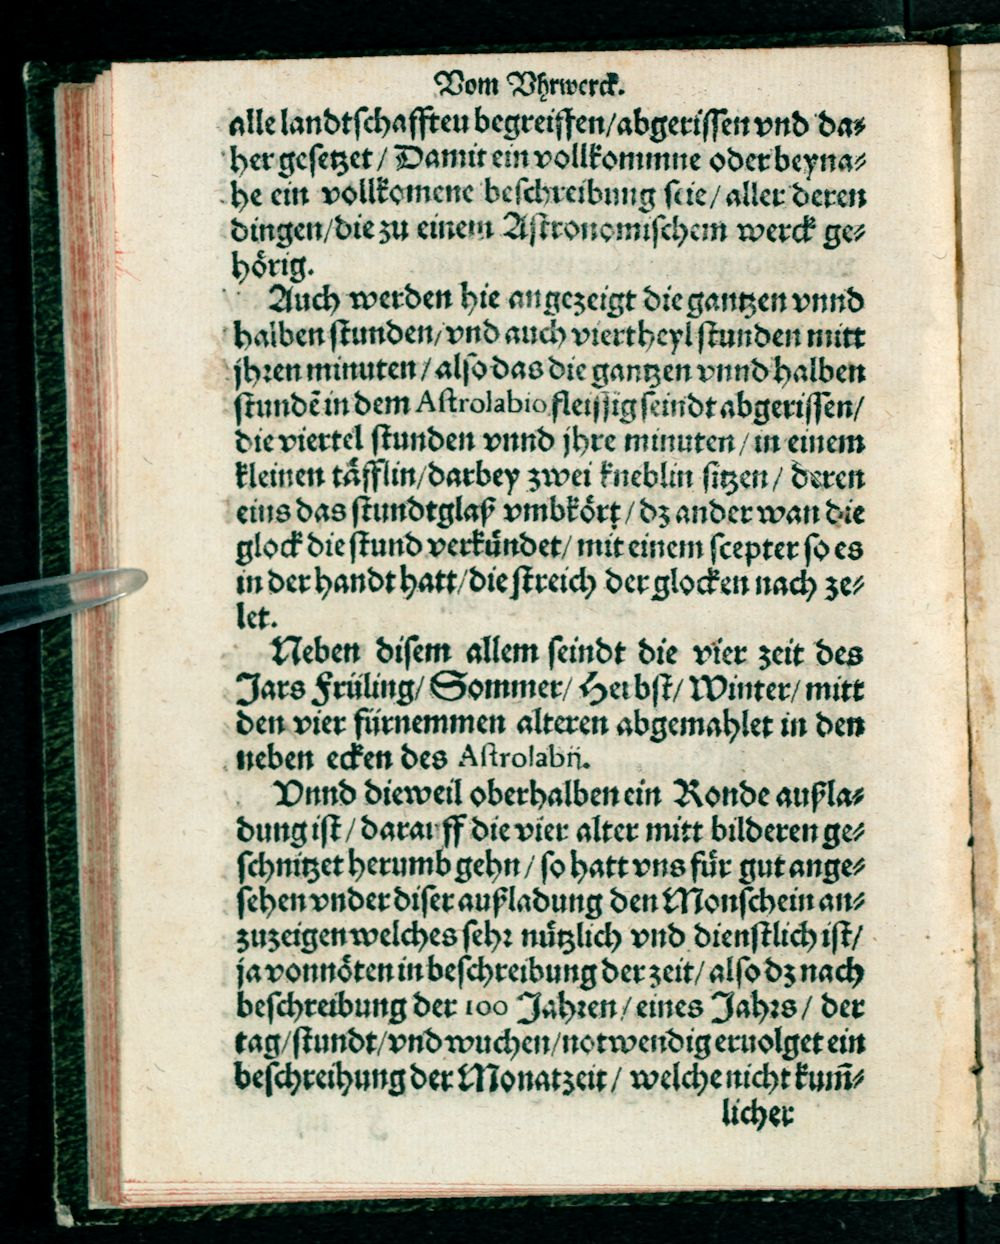 Vom Vhrwerck.
alle landtschafften begreiffen/abgerissen vnd da⸗
her gesetzet / Damit ein vollkommne oder beyna⸗
he ein vollkomene beschreibung seie / aller deren
dingen/die zu einem Astronomischem werck ge⸗
hörig.
Auch werden hie angezeigt die gantzen vnnd
halben stunden/vnd auch viertheyl stunden mitt
jhren minuten / also das die gantzen vnnd halben
stundē in dem Astrolabio fleissig seindt abgerissen/
die viertel stunden vnnd jhre minuten / in einem
kleinen täfflin/darbey zwei kneblin sitzen / deren
eins das stundtglaß vmbkört / dz ander wan die
glock die stund verkündet/ mit einem scepter so es
in der handt hatt/die streich der glocken nach ze⸗
let.
Neben disem allem seindt die vier zeit des
Jars Früling/ Sommer/ Herbst/ Winter/ mitt
den vier fürnemmen alteren abgemahlet in den
neben ecken des Astrolabij.
Vnnd dieweil oberhalben ein Ronde außla⸗
dung ist / darauff die vier alter mitt bilderen ge⸗
schnitzet herumb gehn / so hatt vns für gut ange⸗
sehen vnder diser außladung den Monschein an⸗
zuzeigen welches sehr nützlich vnd dienstlich ist/
ja vonnöten in beschreibung der zeit/ also dz nach
beschreibung der 100 Jahren / eines Jahrs / der
tag/stundt/vnd wuchen/notwendig eruolget ein
beschreibung der Monatzeit / welche nicht kum̄⸗
licher